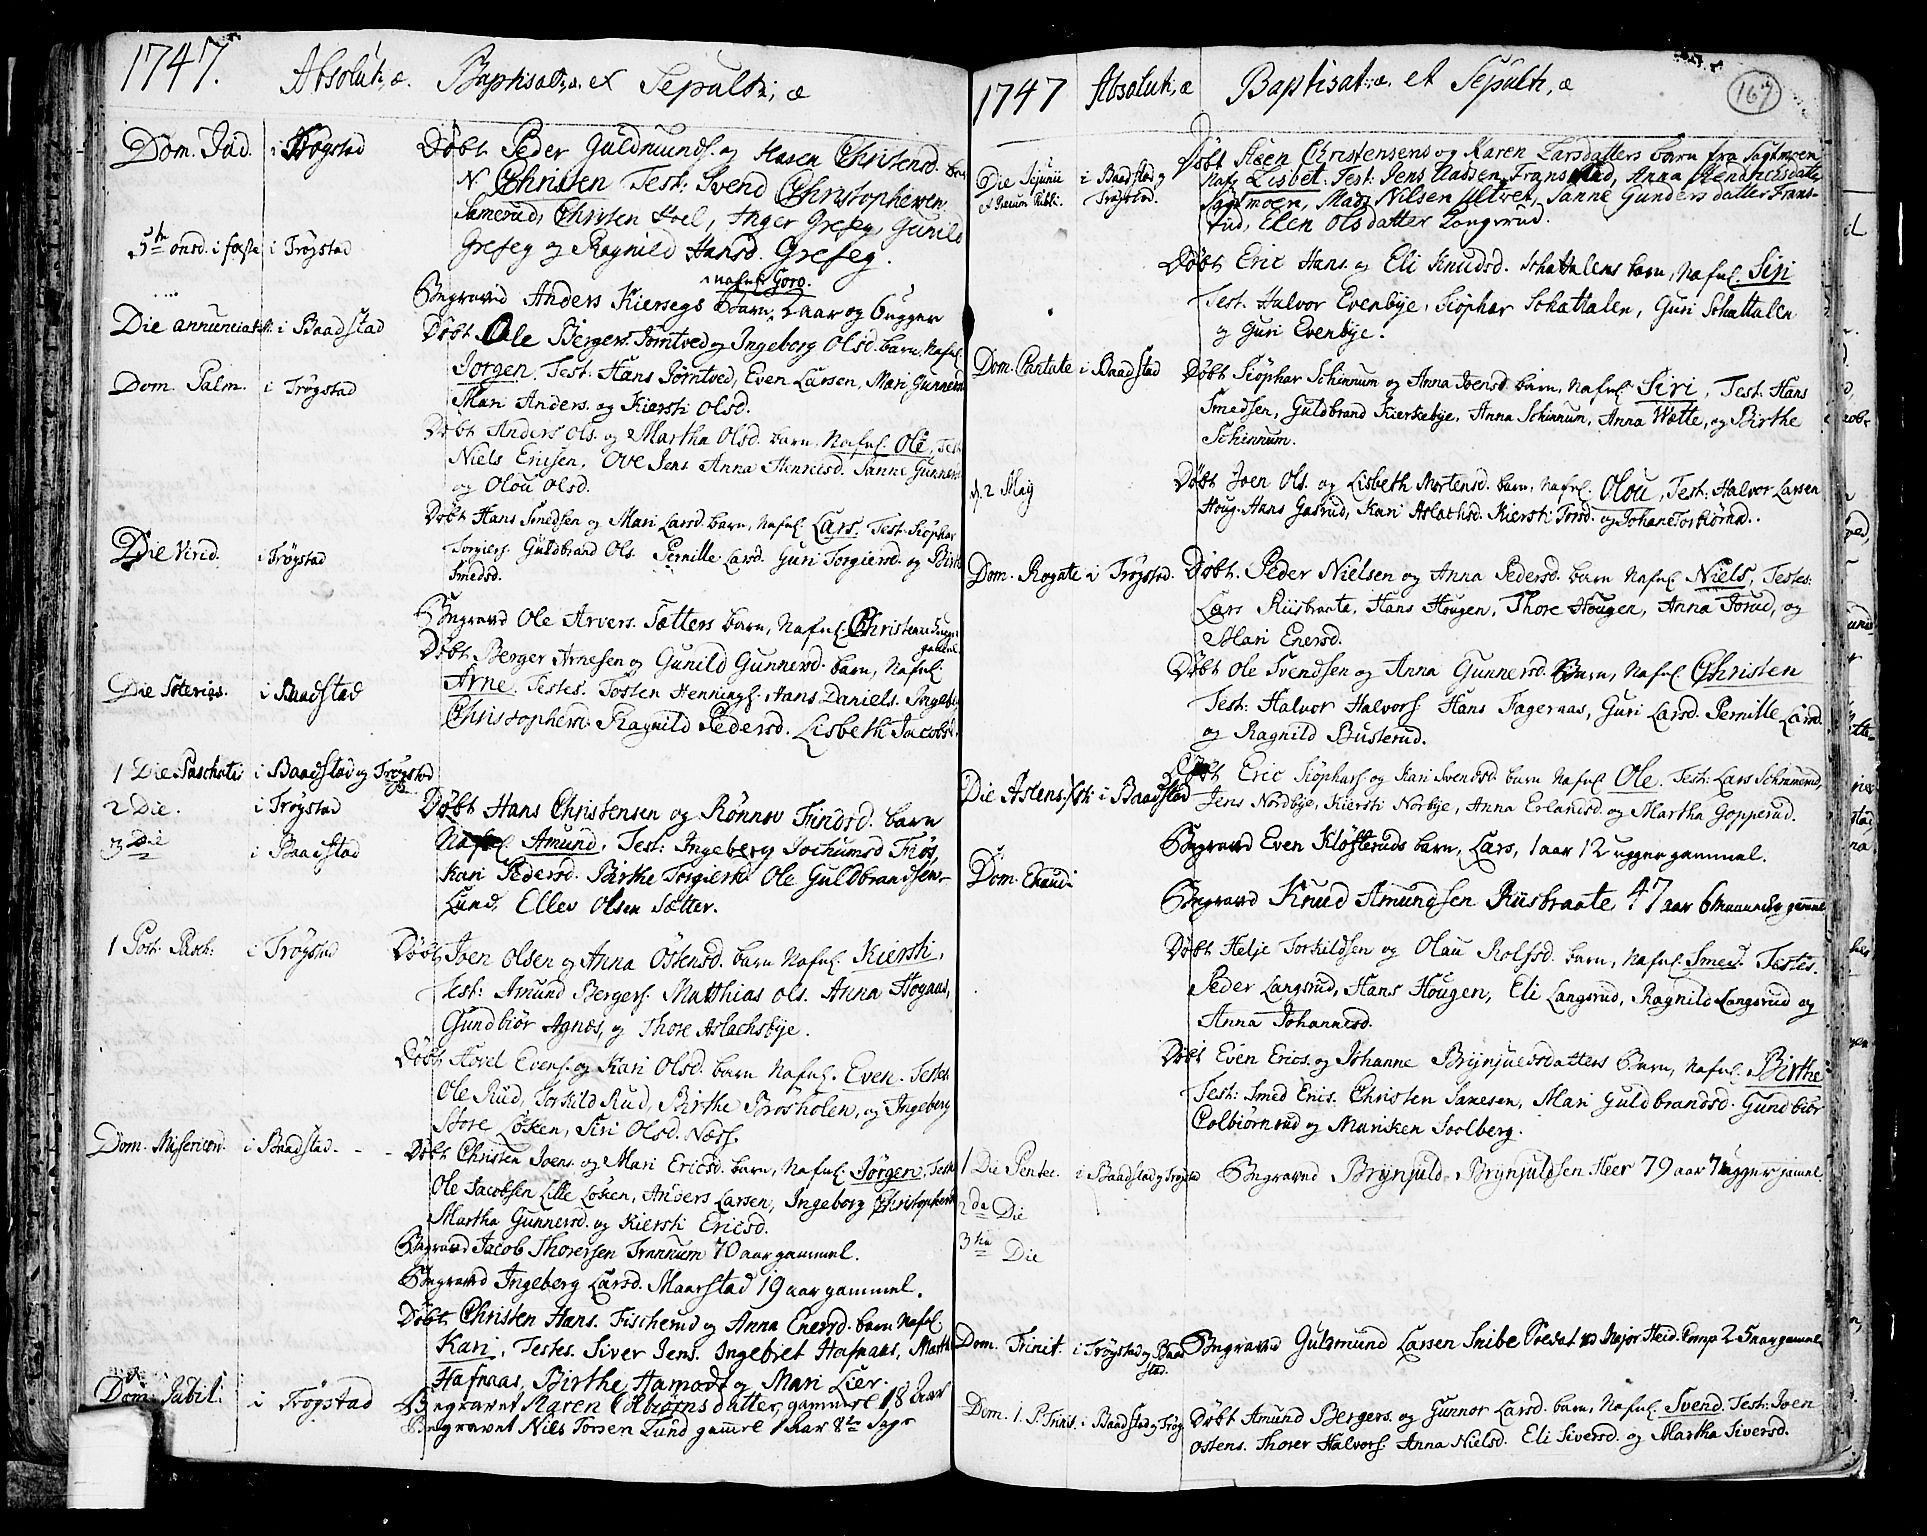 1747. Absolut:, æ. Baptisat:, æ. et Sepult:, æ
Dom. Jud. i Trøgstad Døbt Peder Guldmunds. og Karen Christensd. barn
N. Christen Test: Svend Christophersen
Samerud, Christen Hoel, Inger Grefeg, Gunild
5te onsd. i faste i Trøgstad Grefeg og Ragnild Hansd. Grefeg.
nafnl. Goro.
Begraved Anders Kiersegs barn, 2 aar og 6 ugger
Die annunciat: i Baadstad Døbt Ole Bergers. Torntved og Ingeborg Olsd. barn, Nafnl.
Jorgen. Test: Hans Torntved, Even Larsen, Mari Gunnersd.
Dom. Palm. i Trøgstad Mari Anders. og Kiersti Olsd.
Døbt Anders Ols. og Martha Olsd. barn. Nafnl. Ole, Test.
Niels Ericsen, Ove Jens Anna Henricsd. Sanne Gunners
og Olou Olsd.
Døbt Hans Smedsen og Mari Larsd. barn, Nafnl. Lars. Test: Siøphar
Die Virid. i Trøgstad Torgiers. Guldbrand Ols. Pernille Larsd. Guri Torgiersd. og Birthe
Smedsd.
Begraved Ole Arvers. Sætters barn, Nafnl. Christen
Døbt Berger Arnesen og Gunild Gunnersd. barn, Nafnl.
Die Soterias. i Baadstad Arne. Testes. Tosten Hennings. Hans Daniels. Ingeb.
Christophersd. Ragnild Pedersd. Lisbeth Jacobsd.
1 Die Paschatis i Baadstad og Trøgstad
2 Die. i Trøgstad Døbt Hans Christensen og Rønnov Findsd. barn
3 Die i Baadstad Nafnl. Amund, Test: Ingeberg Jochumsd Trøg
Kari Pedersd. Birthe Torgiersd. Ole Guldbrandsen
Lund, Ellev Olsen Sætter.
1 Post Pasch: i Trøgstad Døbt Iven Olsen og Anna Østensd. barn Nafnl. Kiersti,
Test: Amund Bergers. Matthias Ols. Anna Høgaas,
Gundbiør Agnæs, og Thore Aslachsbye.
Døbt Hovel Evens. og Kari Olsd. barn Nafnl. Even. Testes
Ole Rud, Torkild Rud, Birthe Brosholen, og Ingeberg
Store Løken, Siri Olsd. Næss.
Dom. Misericord. i Baadstad - - Døbt Christen Joens. og Mari Ericsd. barn, Nafnl. Jørgen, Test
Ole Jacobsen Lille Løken, Anders Larsen, Ingeborg Christophersd
Martha Gunnersd. og Kiersti Ericsd.
Begraved Jacob Thorersen Trannum 70 aar gammel.
Begraved Ingeberg Larsd. Maarstad 19 aar gammel.
Døbt Christen Hans. Fischerud og Anna Enersd. barn Nafnl
Kari, Testes. Siver Jens. Ingebret Hafnaas, Marth
Hafnaas, Birthe Hamodt og Mari Lier.
Dom. Jubil: i Trøgstad Begravet Maren Colbiørns datter, gammel 18 Aar
Begravet Niels Torsen Lund gamrel 1 Aar 8te Dage
1747 Absolut:, æ Baptisat:, æ. et Sepult:, æ 167
Døbt Steen Christensens og Karen Larsdatters barn fra Sagtmoen
Die Jejunii i Baadstad og Nafn Lisbet. Test: Jens Madsen Fransrud, Anna Hendricksdatter
Trøgstad. Sagtmoen, Madz Nilsen Ultven, Sanne Gunders datter Frans-
rud, Elen Olsdatter Langsrud.
Døbt Eric Hans. og Eli Knudsd. Schattalens barn, Nafnl. Siri
Test. Halvor Evenbye, Siøphar Schattalen, Guri Schattalen
og Guri Evenbye.
Dom. Cantate i Baadstad Døbt Siøphar Schinnum og Anna Joensd. barn, Nafnl. Siri, Test: Hans
Smedsen, Guldbrand Kierkebye, Anna Schinnum, Anna Wette, og Birthe
Schinnum.
d. 2 Maij Døbt Joen Ols. og Lisbeth Mortensd. barn, Nafnl. Olou, Test. Halvor Larsen
Houg. Hans Gasrud, Kari Aslachsd. Kiersti Torsd. og Johane Torbiørnsd.
Dom. Rogate i Trøgstad. Døbt. Peder Nielsen og Anna Pedersd. barn Nafnl. Niels, Testes:
Lars Riisbraate, Hans Hougen, Thore Hougen, Anna Torud, og
Mari Enersd.
Døbt Ole Svendsen og Anna Gunnersd. Barn, Nafnl. Christen
Test: Halvor Halvors. Hans Fageraas, Guri Larsd. Pernille Larsd.
og Ragnild Busterud.
Døbt Eric Siøphars. og Kari Svendsd. barn Nafnl Ole. Test: Lars Schinnerud,
Die Ascens. Xsti i Baadstad Jens Nordbye, Kiersti Norbye, Anna Erlandsd. og Martha Gopperud.
Begraved Even Kløsteruds barn, Lars, 1 aar 12 ugger gammel.
Dom. Exaudi
Begraved Knud Amundsen Riisbraate 47 aar 6 maaneder gammel
Døbt Helje Torkildsen og Olau Rolfsd. barn, Nafnl. Smed. Testes.
Peder Langsrud, Hans Hougen, Eli Langsrud, Ragnild Langsrud og
Anna Johannesd.
Døbt Even Erics. og Johanne Brynjuldsdatters Barn, Nafnl. Birthe
Test: Smed Erics. Christen Saxesen, Mari Guldbrandsd. Gundbiør
Colbiørnsrud og Mariken Soolberg.
1 Die Pentec. i Baadstad og Trøgstad Begraved Brynjuld Brynjuldsen Heer 79 aar 7 ugger gammel
2da Die
3tia Die
Dom. Trinit. i Trøgstad og Baadstad. Begraved Guldmund Larsen Snibe Soldat ved Major Heid. Comp 25 aar gammel
Dom. 1. P. Trinit. i Baadstad og Trøg Døbt Amund Bergers. og Gunnor Larsd. barn, Nafnl. Svend. Test: Joen
Ostens. Thorer Halvors. Anna Nielsd. Eli Siversd. og Martha Siversd.